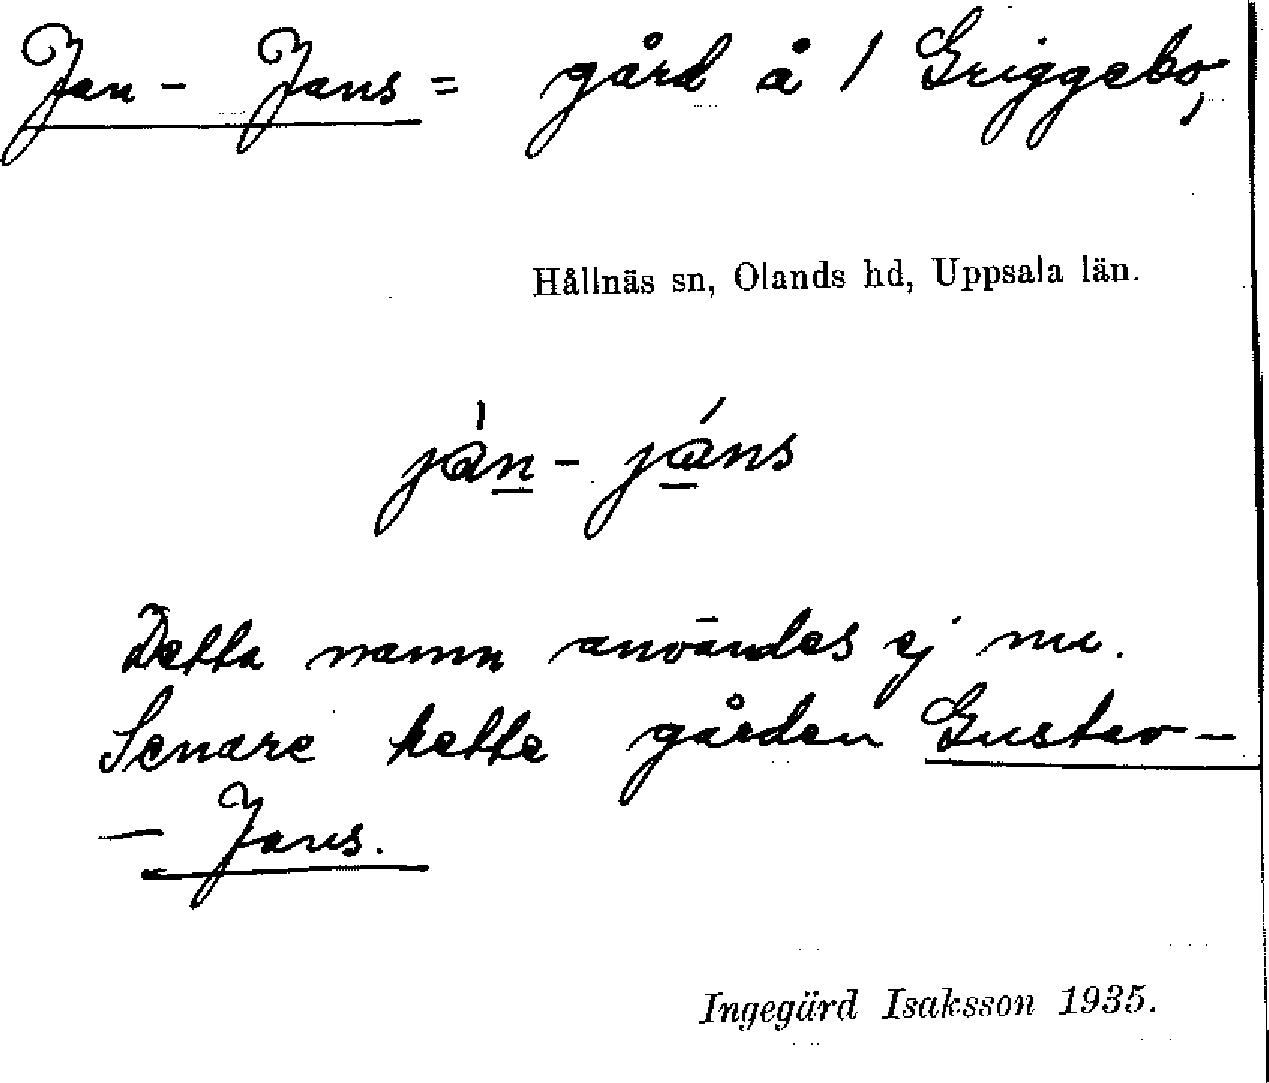 Jan - Jans = gård å 1 Griggebo,
Hållnäs sn, Olands hd, Uppsala län.
jàn - jáns
Detta namn användes ej nu.
Senare hette gården Gustav -
- Jans.
Ingegärd Isaksson 1935.